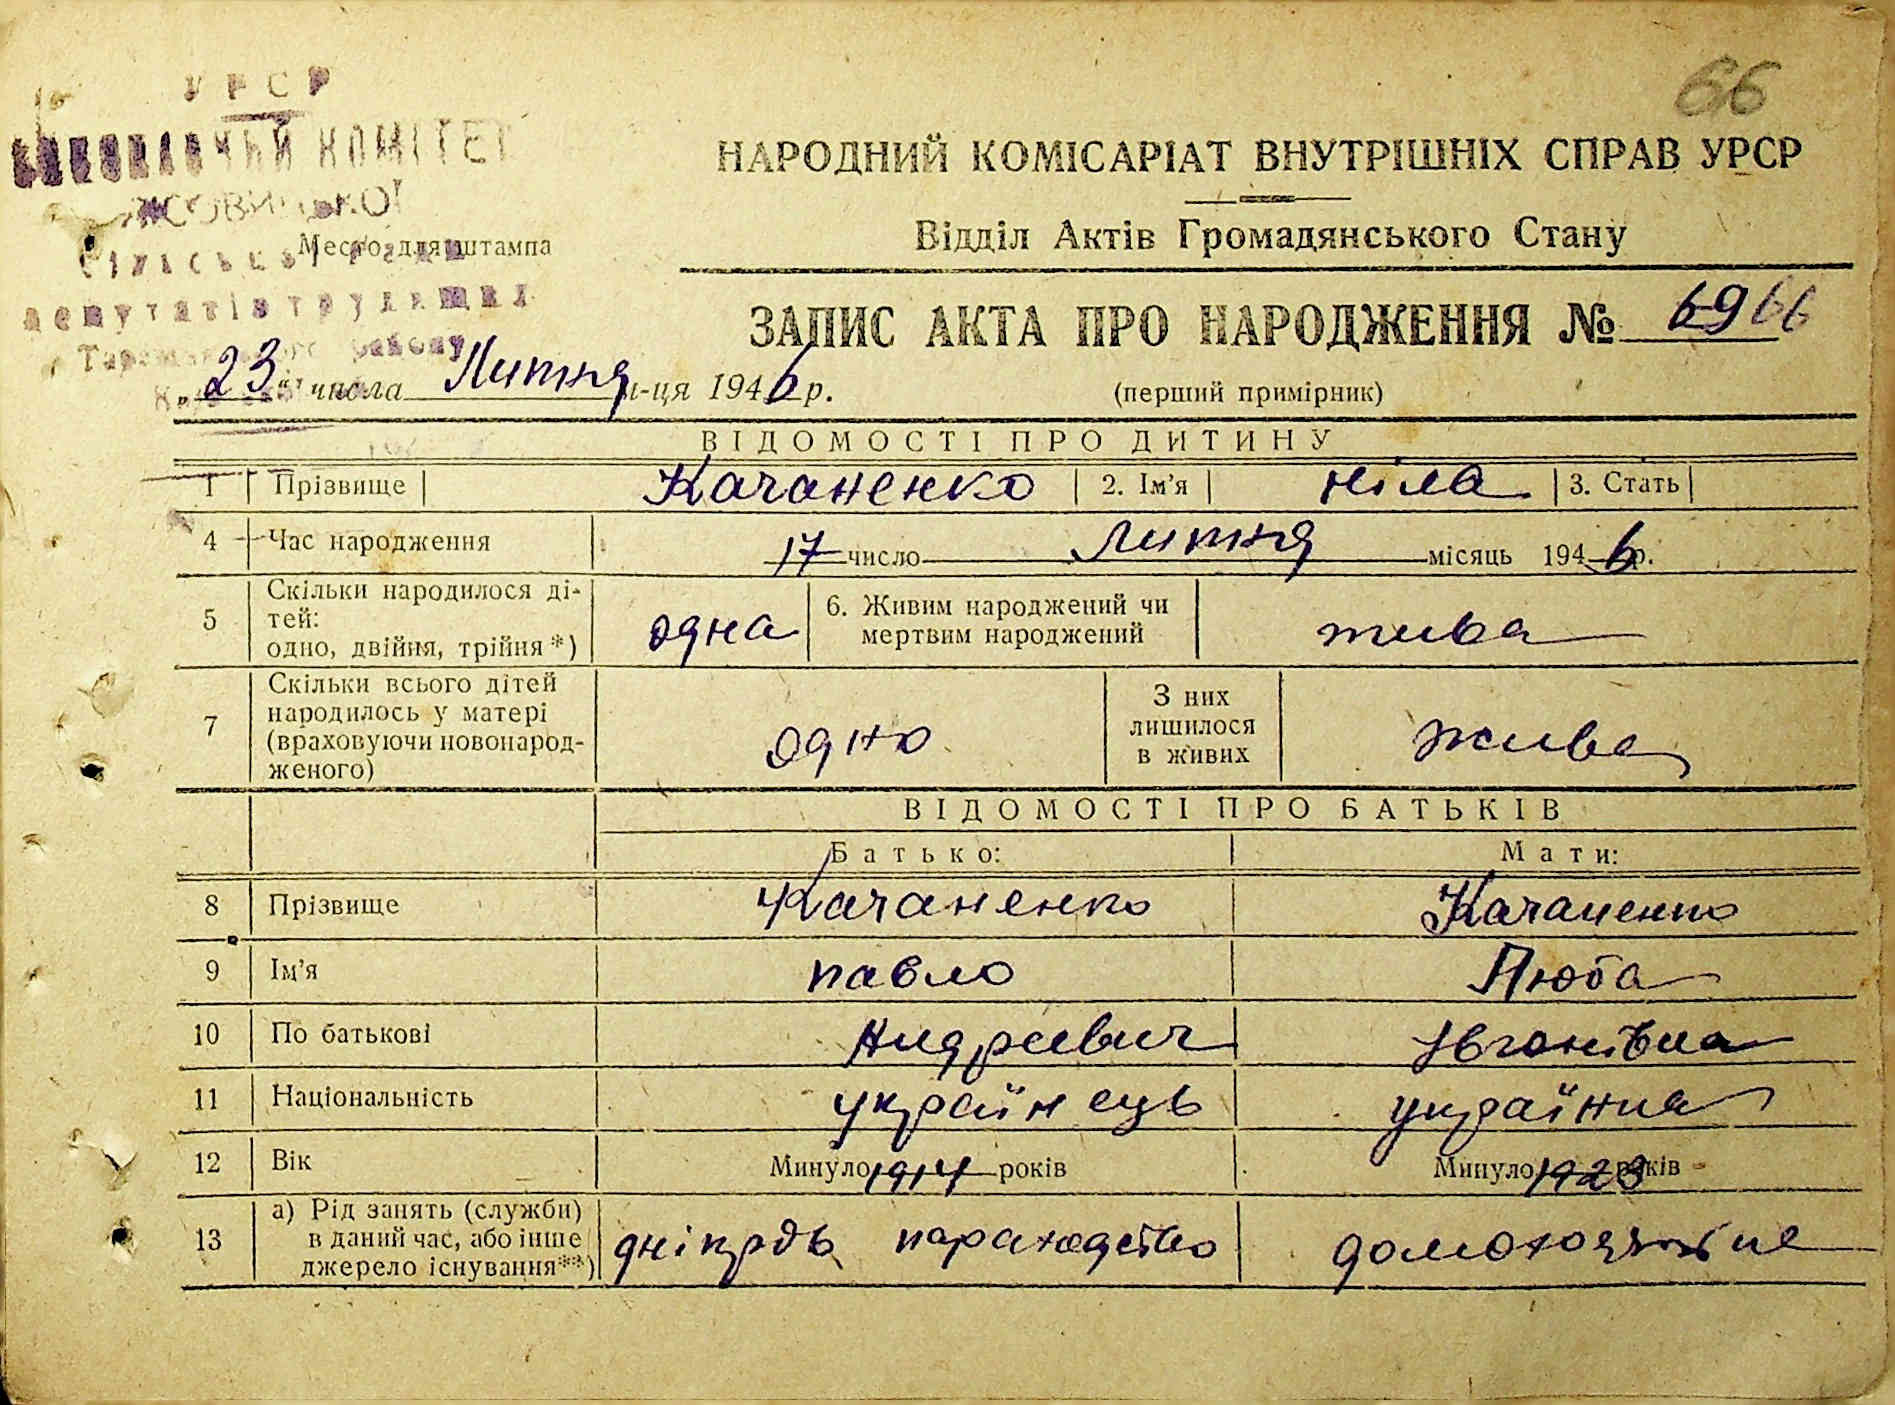 66
УРСР
КОМІТЕТ
Место для штампа
депутатів трудящих
району
НАРОДНИЙ КОМІСАРІАТ ВНУТРІШНІХ СПРАВ УРСР
Відділ Актів Громадянського Стану
ЗАПИС АКТА ПРО НАРОДЖЕННЯ № 69 66
„ 23 “ числа Липня м-ця 1946 р.
(перший примірник)
ВІДОМОСТІ ПРО ДИТИНУ
1 Прізвище Качаненко 2. Ім'я Ніла 3. Стать
4 Час народження 17 число Липня місяць 1946 р.
5 Скільки народилося ді-
тей:
одно, двійня, трійня *) одна
6. Живим народжений чи
мертвим народжений жива
7 Скільки всього дітей
народилось у матері
(враховуючи новонарод-
женого) одно
З них
лишилося
в живих жива
ВІДОМОСТІ ПРО БАТЬКІВ
Батько: Мати:
8 Прізвище Качаненко Качаненко
9 Ім'я павло Люба
10 По батькові Андреевич
11 Національність українець українка
12 Вік Минуло 1914 років Минуло 1923 років
13 а) Рід занять (служби)
в даний час, або інше
джерело існування**)
пароходство